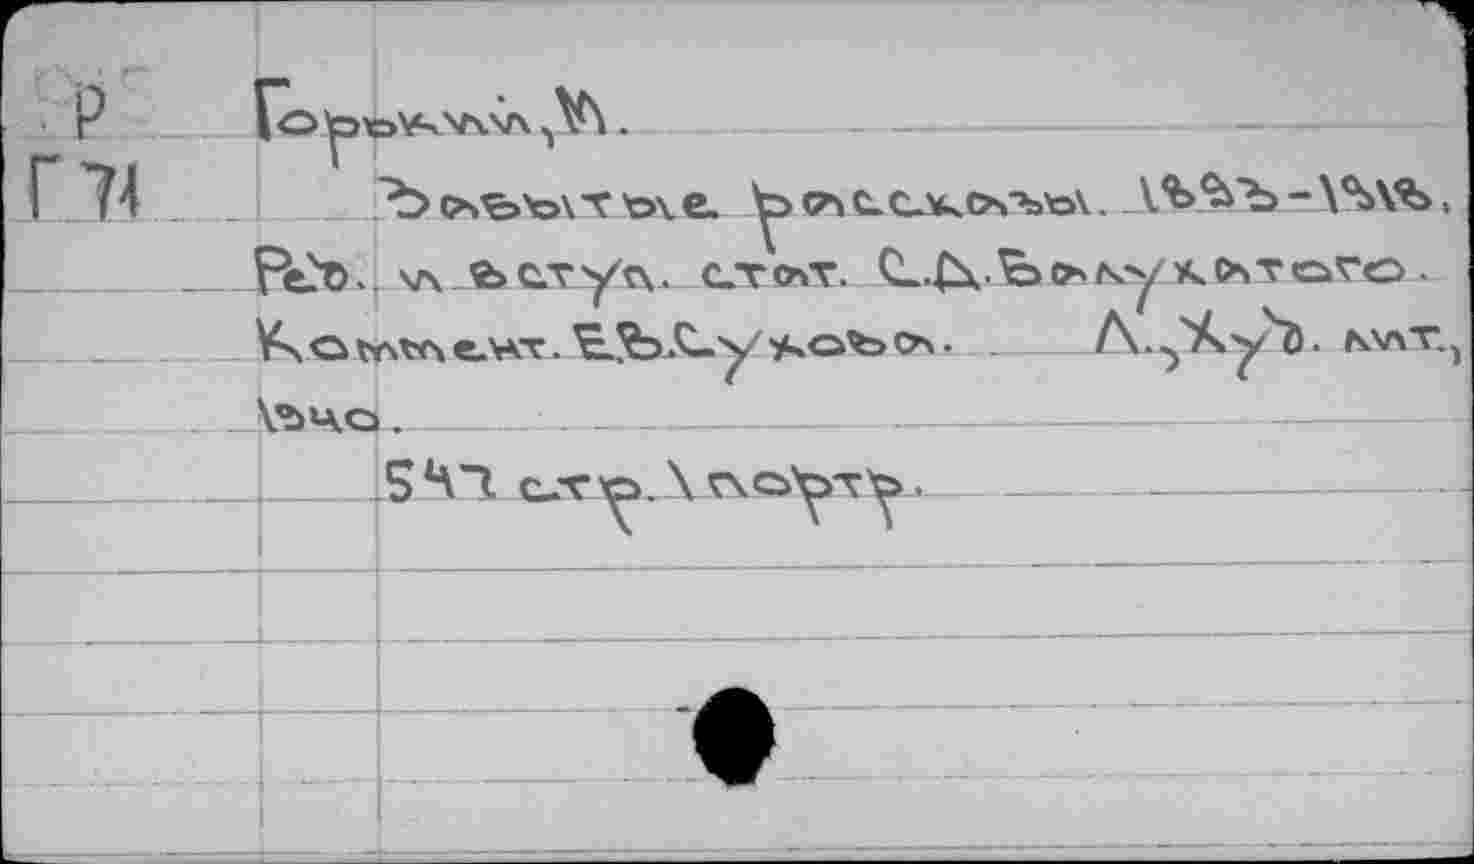 Р Горький, М.
Г 71 Забытые рассказы. 1893-1918,
Ред. и вступ. стат. С.Д.Балухатого.
Коммент. Е.В.Сухова. Л.,Худ. лит.,
1940.
547 стр. 1 портр.